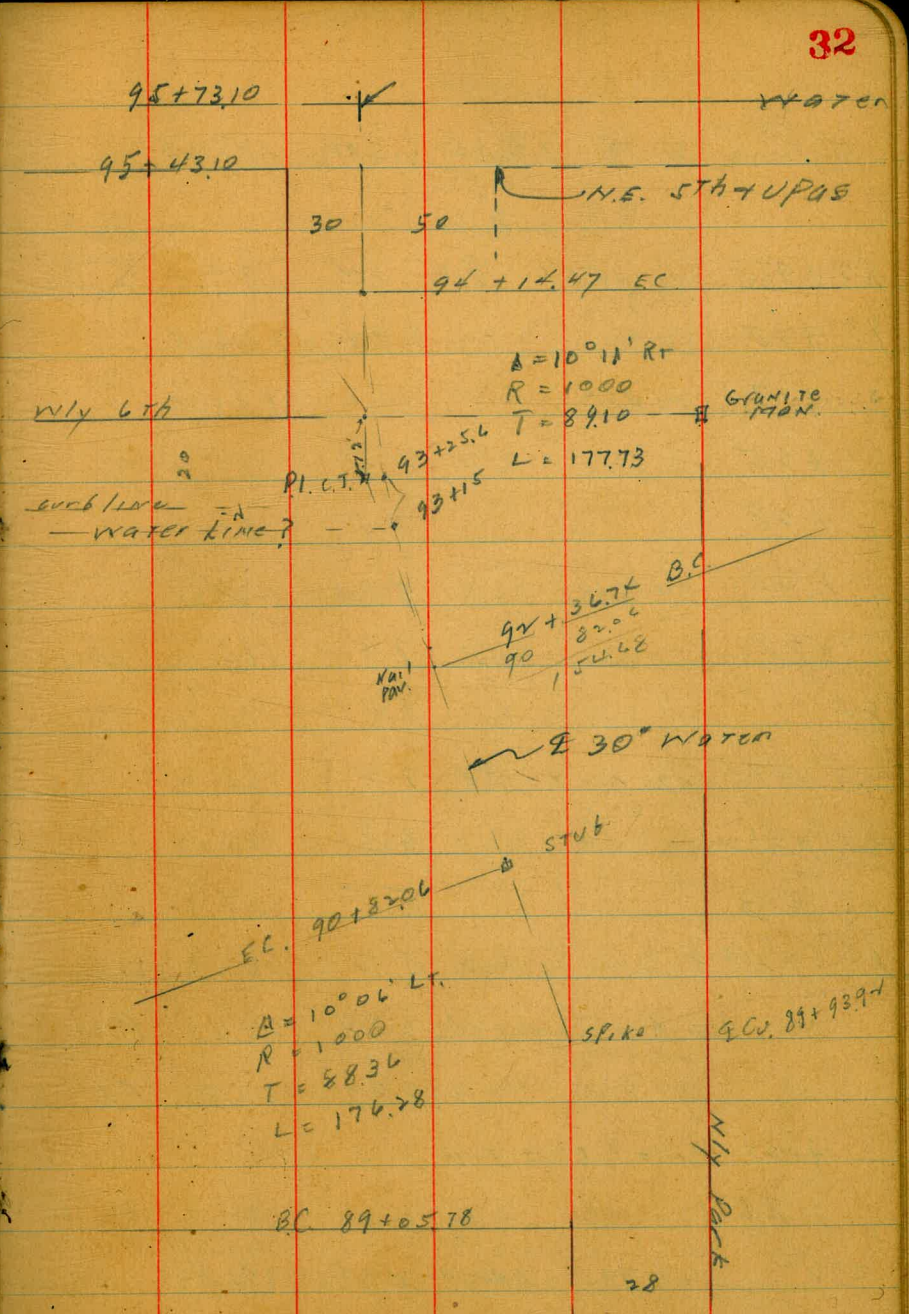 32
95+73.10
Water
95+43.10
N.E. 5Th + UPas
30 50
94 + 14.47 EC
Δ = 10° 11' RT
R = 1000
T = 89.10
L = 177.73
Granite
Mon.
Wly 6Th
20
P.I. C.T.
93+25.6
93+15
curb line
Water Line?
92 + 36.74 B.C.
90 82.06
1 54.68
Nail
Pav.
℄ 30" Water
STub
E.C. 90+82.06
Δ = 10° 06' LT.
R = 1000
T = 88.36
L = 176.28
Spike
89+93.92
Nly Park
B.C. 89+05.78
28